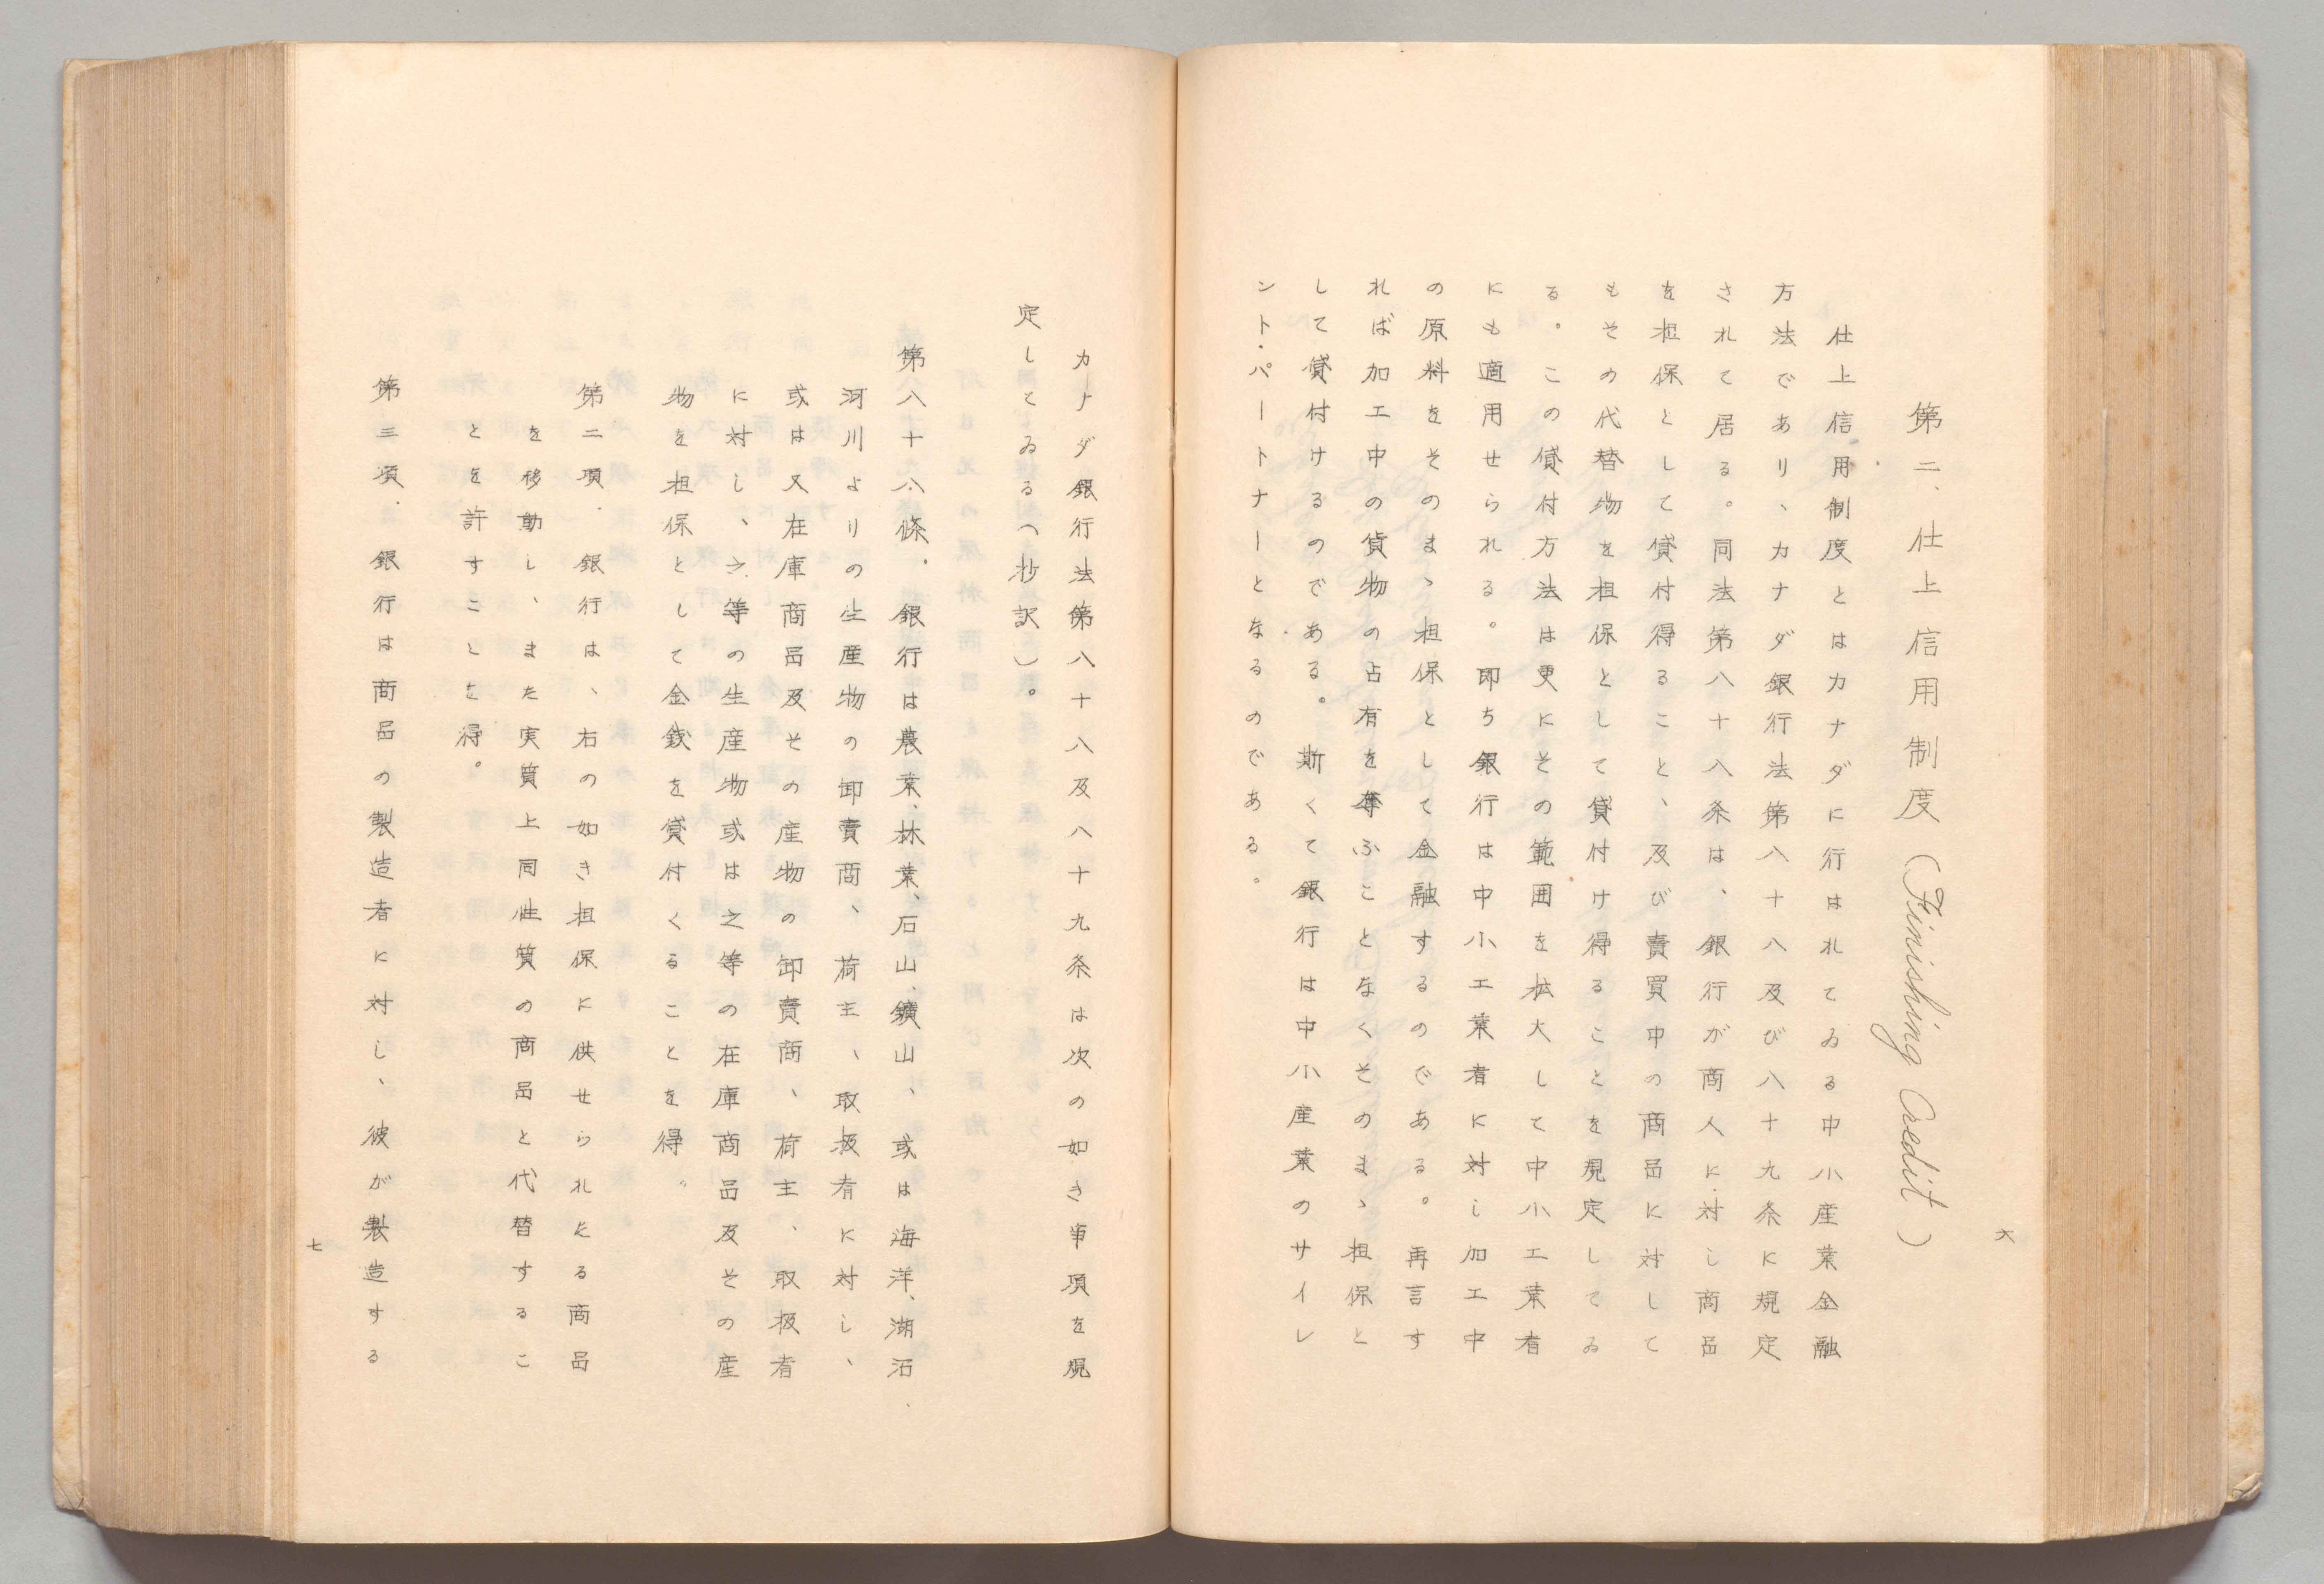 第二、仕上信用制度（Finishing Credit）
仕上信用制度とはカナダに行はれてゐる中小産業金融
方法であり、カナダ銀行法第八十八及び八十九条に規定
されて居る。同法第八十八条は、銀行が商人に対し商品
を担保として貸付得ること、及び賣買中の商品に対して
もその代替物を担保として貸付け得ることを規定してゐ
る。この貸付方法は更にその範囲を拡大して中小工業者
にも適用せられる。即ち銀行は中小工業者に対し加工中
の原料をそのまゝ担保として金融するのである。再言す
れば加工中の貨物の占有を奪ふことなくそのまゝ担保と
して貸付けるのである。斯くて銀行は中小産業のサイレ
ント・パートナーとなるのである。
六
カナダ銀行法第八十八及八十九条は次の如き事項を規
定してゐる（抄訳）。
第八十八條．銀行は農業、林業、石山、鑛山、或は海洋、湖沼
河川よりの生産物の卸賣商、荷主、取扱者に対し、
或は又在庫商品及その産物の卸賣商、荷主、取扱者
に対し、之等の生産物或は之等の在庫商品及その産
物を担保として金銭を貸付くることを得。
第二項．銀行は、右の如き担保に供せられたる商品
を移動し、また実質上同性質の商品と代替するこ
とを許すことを得。
第三項．銀行は商品の製造者に対し、彼が製造する
七